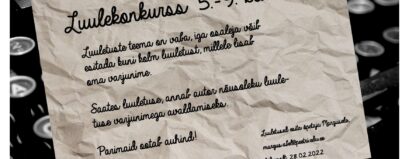 Luulekonkurss 5.-9.
Luuletuste teema on vaba, iga osaleja võib
esitada kuni kolm luuletust, millele lisab
oma varjunime.
Saates luuletuse, annab autor nõusoleku luule-
tuse varjunimega avaldamiseks.
Parimaid ootab auhind!
Luuletused saata õpetaja
28.02.2022